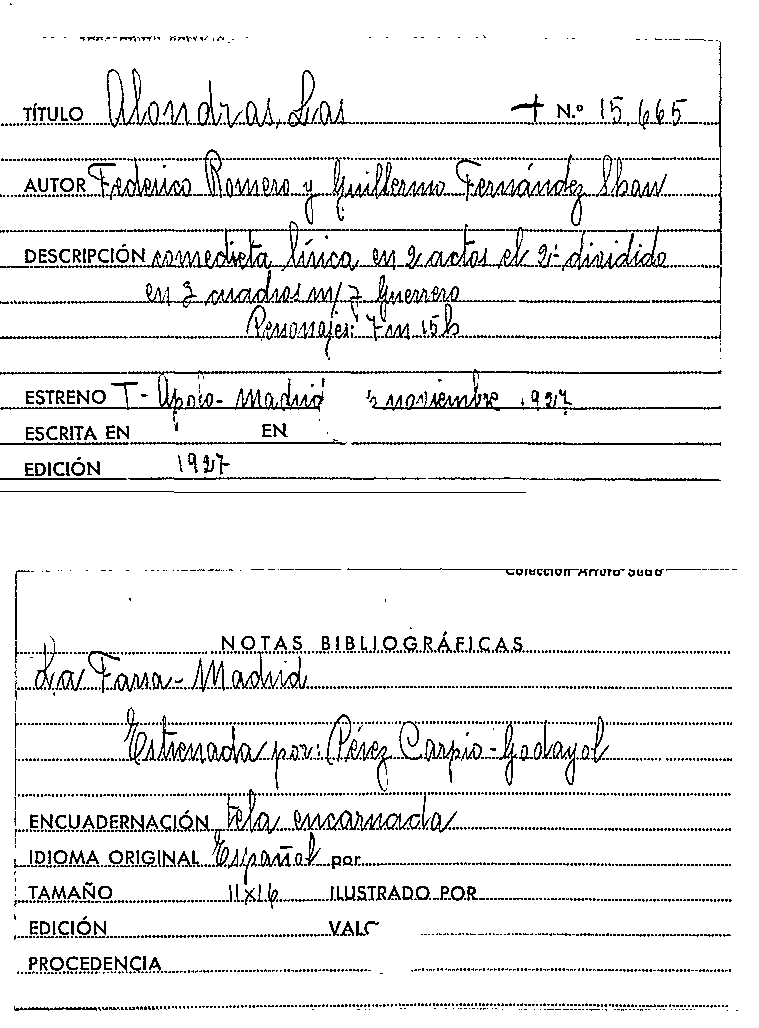 TÍTULO Alondras, Las + N.º 15.665
AUTOR Federico Romero y Guillermo Fernández Shaw
DESCRIPCIÓN comedieta lírica en 2 actos el 2º dividido
en 3 cuadros m/ J Guerrero
Personajes: 7 m 15 h
ESTRENO T - Apolo - Madrid noviembre 1927
ESCRITA EN EN
EDICIÓN 1927
Colección Arturo Sedó
NOTAS BIBLIOGRÁFICAS
La Farsa - Madrid
Estrenada por: Pérez Carpio - Godayol
ENCUADERNACIÓN tela encarnada
IDIOMA ORIGINAL Español por
TAMAÑO 11x16 ILUSTRADO POR
EDICIÓN
PROCEDENCIA